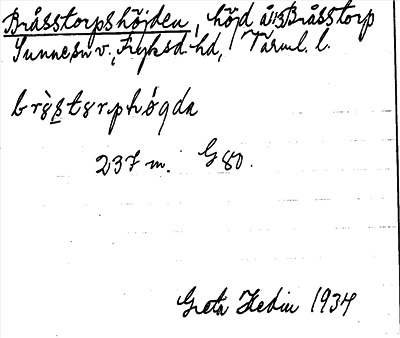 Bråsstorpshöjden, höjd å Bråsstorp
Sunne sn v., Fryksd. hd, Värml. l.
brɤ̀s̱tɤrphǿgda
237 m. G 80.
Greta Hedin 1934